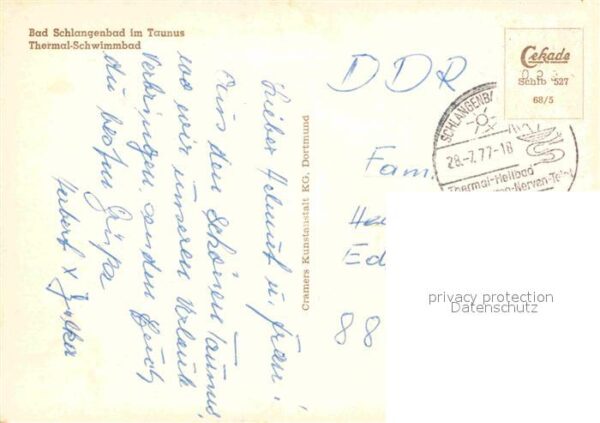 Bad Schlangenbad im Taunus
Thermal-Schwimmbad
Lieber Helmut u. Frau!
Aus den Schönen Taunus,
wo wir unseren Urlaub
Verbringen senden Euch
die besten Grüße
Herbert
Cramers Kunstanstalt KG, Dortmund
Cekade
Schlb 527
68/5
SCHLANGENB
28.-7.77-18
Thermal-Heilbad
DDR
Fam.
He
Ed
88
privacy protection
Datenschutz